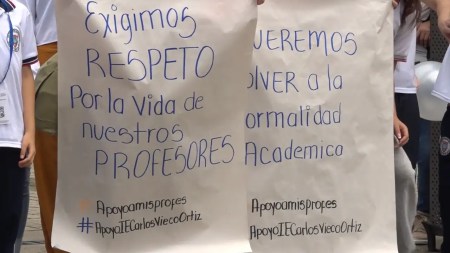 Exigimos
RESPETO
Por la Vida de
nuestros
PROFESORES
#Apoyoamisprofes
#ApoyoIECarlosViecoOrtiz
QUEREMOS
OLVER a la
ormalidad
Academica
Apoyoamisprofes
ApoyoIECarlosViecoOrtiz